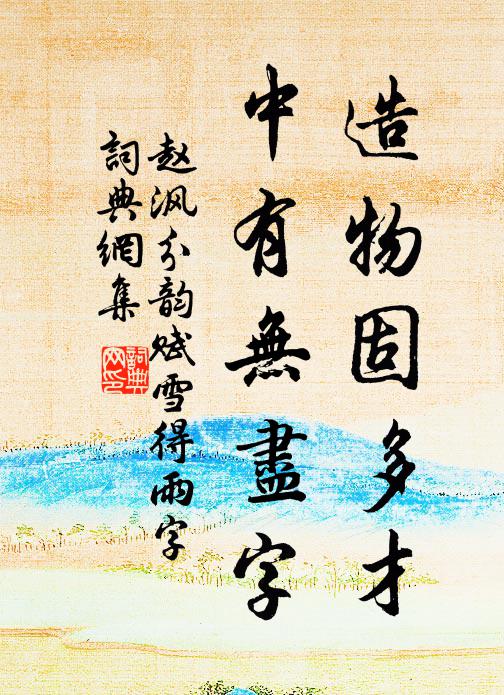 造物固多才
中有無盡字
赵沨分韵赋雪得雨字
詞典網集
詞典网印